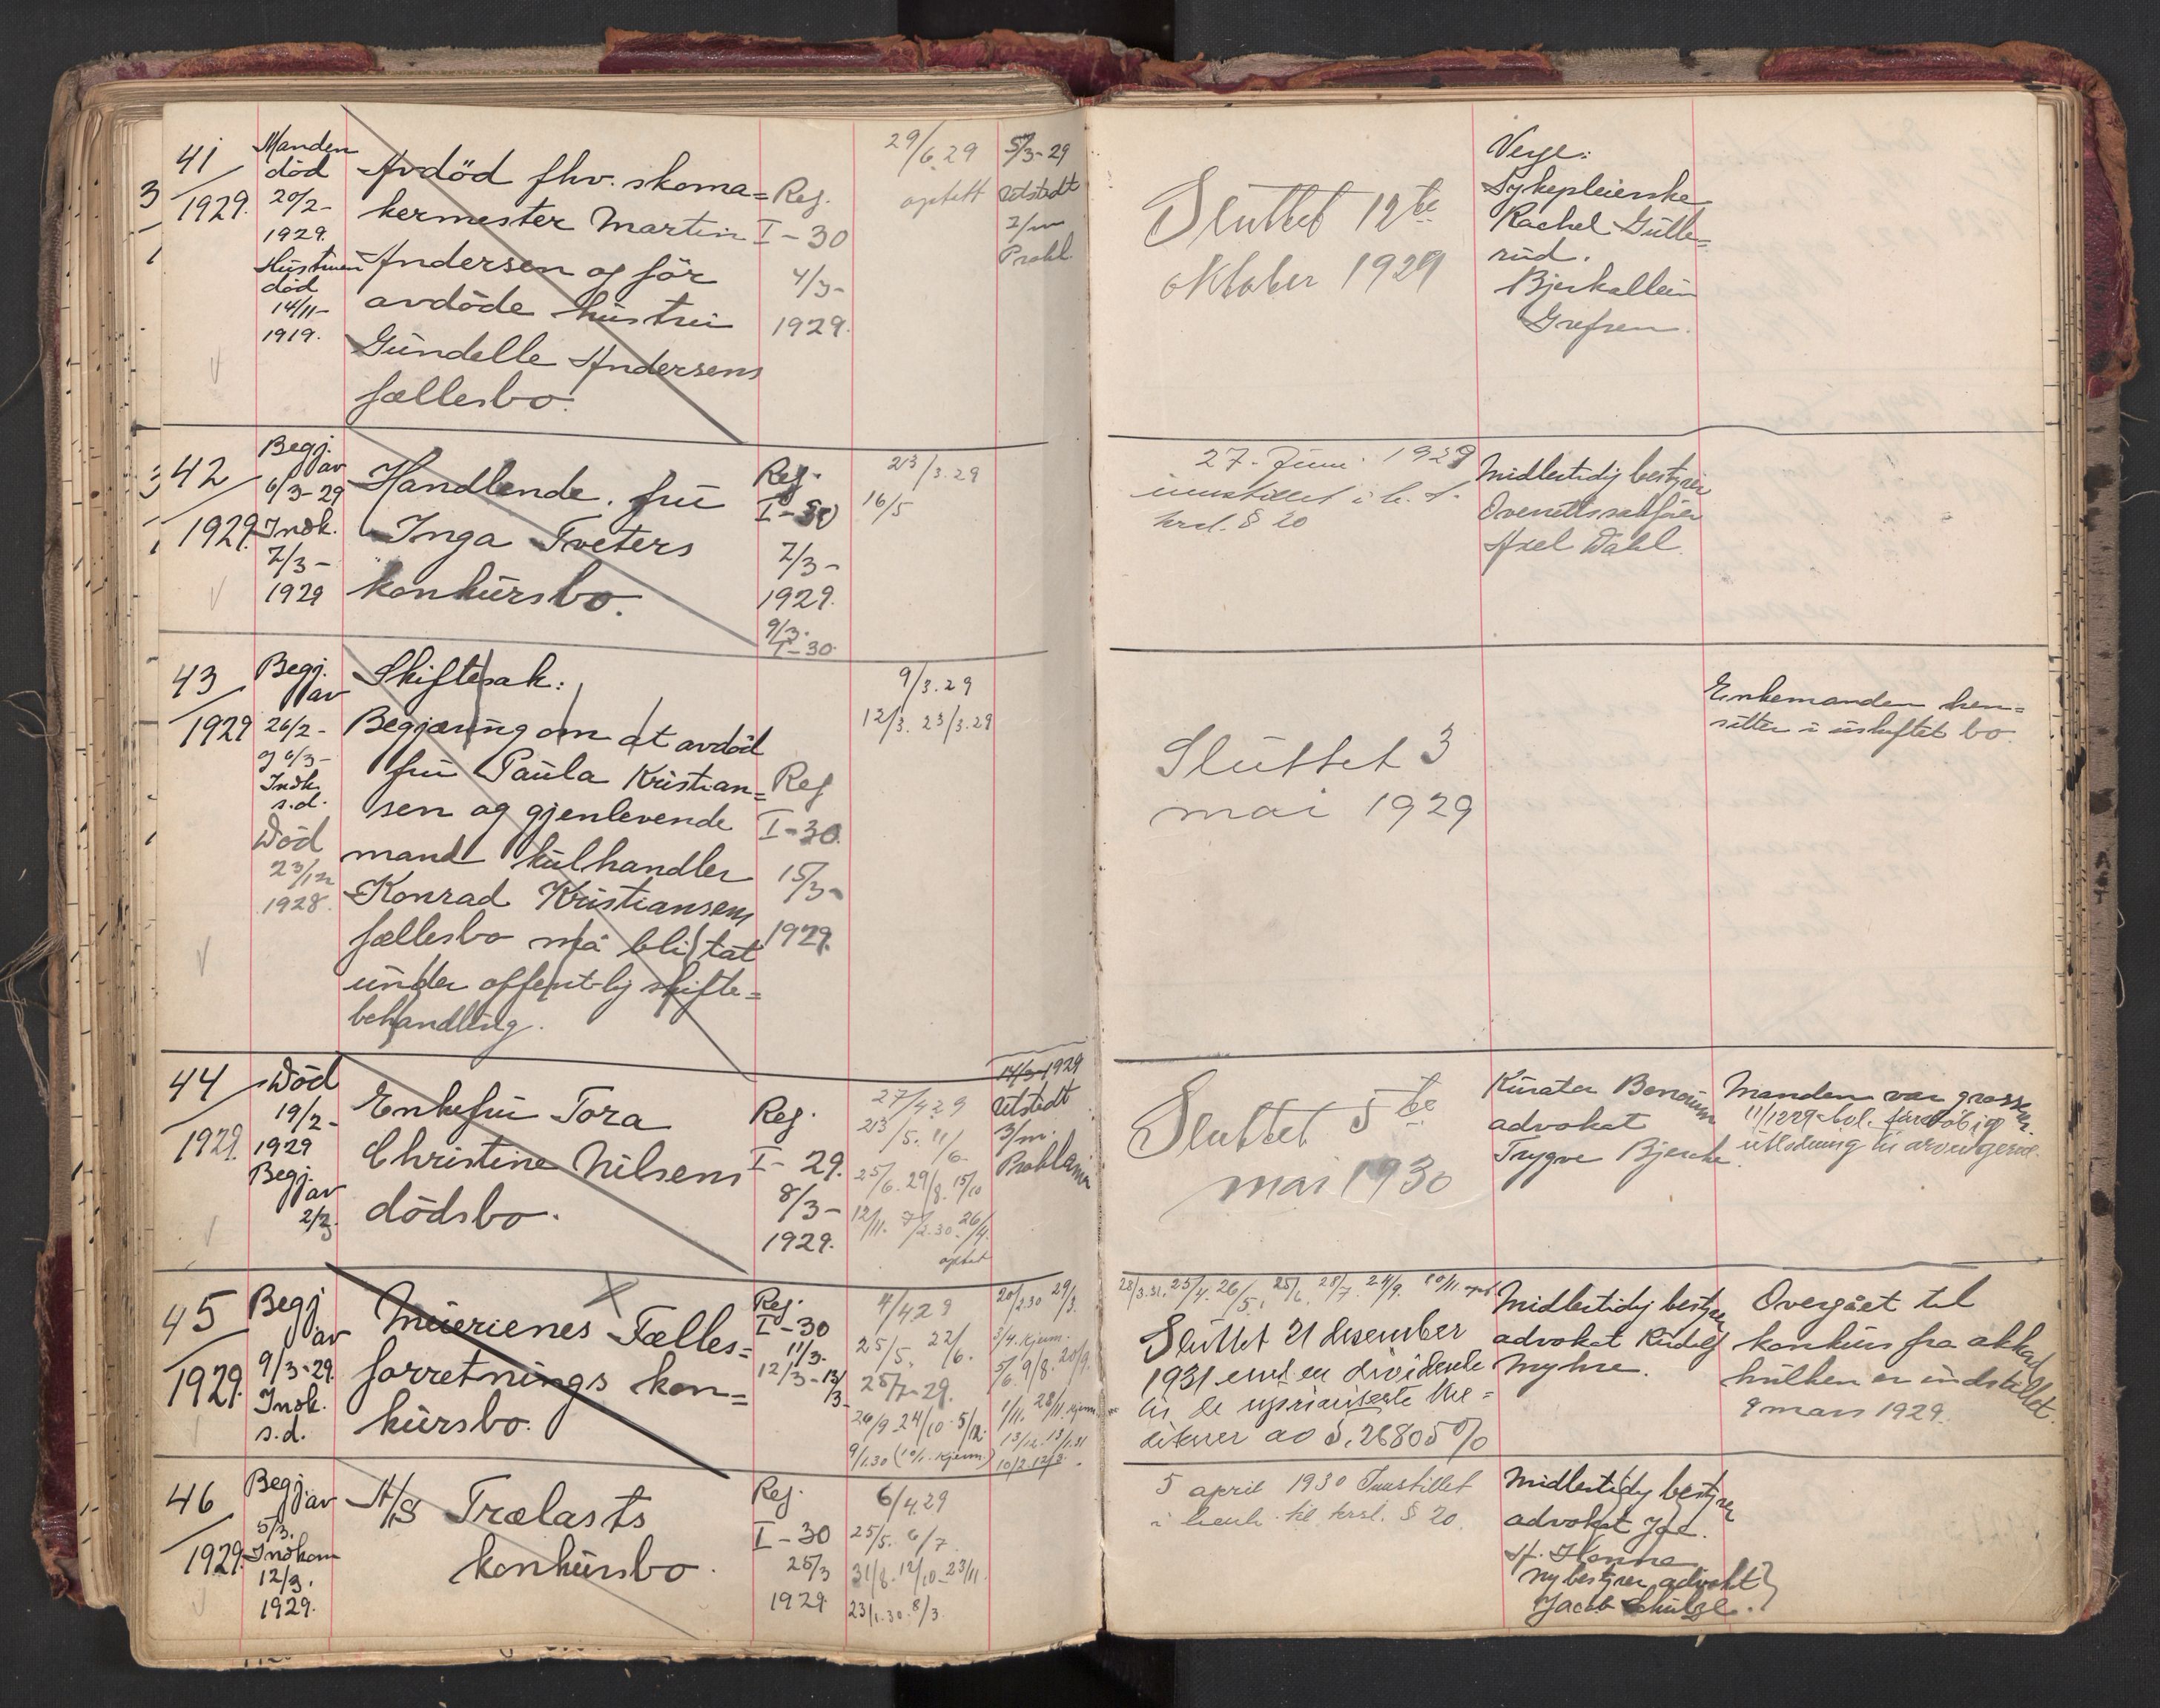 41
1929.
Manden
död
20/2-
1929.
Hustruen
död
14/11-
1919.
Avdöd fhv. skoma=
kermester Martin
Andersen og för
avdöde hustru
Gundelle Andersens
fællesbo.
Reg.
I-30
4/3-
1929.
29/6.29
5/3-29
Utstedt
Prokl.
Sluttet 12te
oktober 1929
Verge:
Sykepleierske
Rachel Gulle=
rud.
Grefsen.
42
1929.
Begj.
av
6/3-29
Indk.
7/3-
1929
Handlende, fru
Inga Tveters
konkursbo.
Reg.
7/3-
1929.
9/3.
I-30
23/3.29
16/5
27. Juni 1929
innstillet i h. t.
krsl. § 20
Midlertidig bestyrer
Overrettssakförer
Axel Dahl.
43
1929
Begj.
av
26/2-
og 6/3-
Indk.
s.d.
Död
23/12
1928.
Skiftesak:
Begjæring om at avdöd
fru Paula Kristian=
sen og gjenlevende
mand kulhandler
Konrad Kristiansens
fællesbo må bli tat
under offentlig skifte=
behandling.
Reg
I-30.
15/3-
1929.
9/3.29
12/3. 23/3.29
Sluttet 3
mai 1929
Enkemanden hen=
sitter i uskiftet bo.
44
1929.
Död
19/2-
1929
Begj.
av
2/3.
Enkefru Tora
Christine Nilsens
dödsbo.
Reg.
I-29.
8/3-
1929.
27/4.29
23/5. 11/6.
25/6. 29/8. 15/10
12/11. 7/2.30. 26/4.
14/3-1929
Utstedt
3/m.
Proklama
Sluttet 5te
mai 1930
Kurator
advokat
Trygve Bjerke.
Manden var grosser.
utlodning til arvingene.
45
1929.
Begj
av
9/3-29.
Indk.
s.d.
Meierienes Fælles=
forretnings kon=
kursbo.
Reg.
I-30
11/3.
12/3-13/3.
4/4.29
25/5. 22/6.
25/7-29.
26/9-24/10-5/12.
9/1.30 (10/1. kjenn.)
20/2.30 29/3.
3/4. kjenn.
5/6. 9/8. 20/9.
1/11. 28/11. kjenn.
13/12. 13/1.31
10/2. 12/3.
28/3.31. 25/4. 26/5. 25/6. 28/7. 24/9. 10/11.
Sluttet 21 desember
1931 med en dividende
til de uprioriterte kre=
ditorer av 5,26805 %
Midlertidig bestyrer
advokat Rudolf
Myhre.
Overgået til
konkurs fra akkord
hvilken er indstillet
9 mars 1929.
46
1929.
Begj.
av
5/3.
Indkom
12/3.
1929.
A/S Trælasts
konkursbo.
Reg.
I-30
25/3
1929.
6/4.29
25/5. 6/7.
31/8. 12/10-23/11.
23/1.30. 8/3.
5 april 1930 Innstillet
i henh. til krsl. § 20.
Midlertidig bestyrer
advokat Joh.
H. Hanne
ny bestyrer advokat
Jacob Schulze.